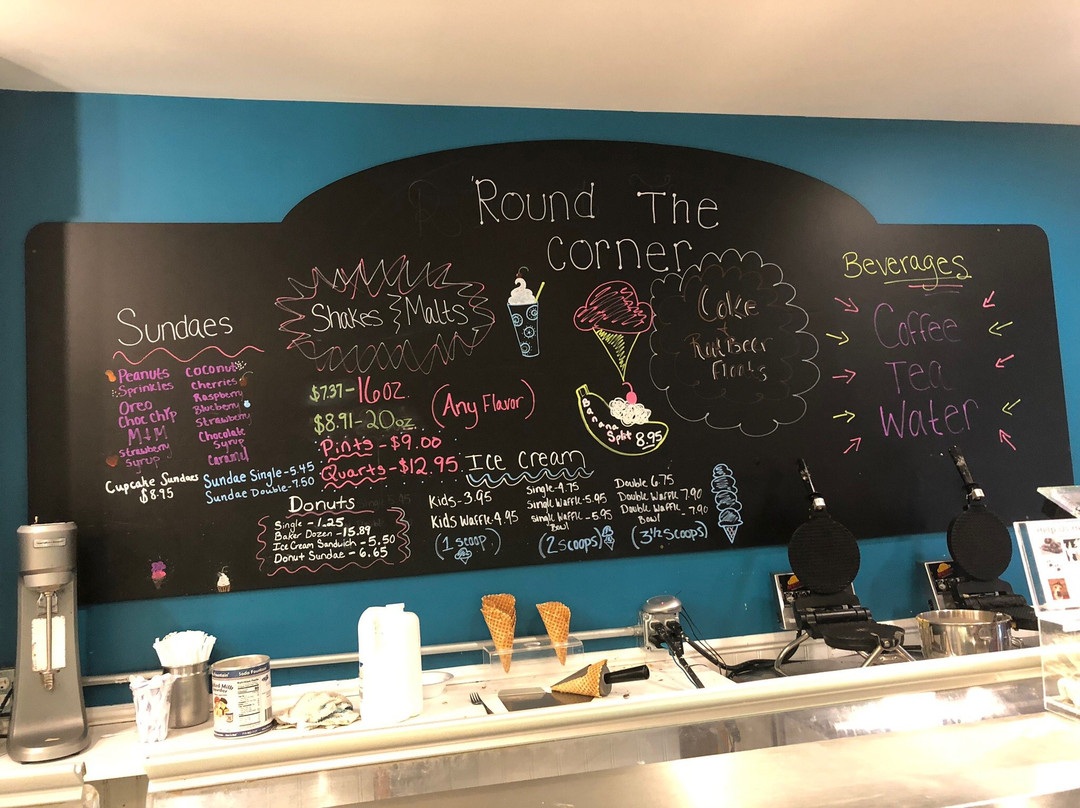 'Round The
Corner
Sundaes
Peanuts
Sprinkles
Oreo
Choc chip
M+M
Strawberry
Syrup
Coconut
Cherries
Raspberry
Blueberry
Strawberry
Chocolate
Syrup
Caramel
Cupcake Sundaes
$8.95
Sundae Single - 5.45
Sundae Double - 7.50
Shakes & Malts
$7.37 - 16 oz.
$8.91 - 20 oz
(Any Flavor)
Pints - $9.00
Quarts - $12.95
Donuts
Single - 1.25
Baker Dozen - 15.89
Ice Cream Sandwich - 5.50
Donut Sundae - 6.65
Ice Cream
Kids - 3.95
Kids Waffle 4.95
(1 scoop)
Single - 4.75
Single Waffle - 5.95
Single Waffle - 5.95
Bowl
(2 scoops)
Double 6.75
Double Waffle 7.90
Double Waffle - 7.90
Bowl
(3 1/2 scoops)
Banana
Split 8.95
Coke
+
Root Beer
Floats
Beverages
Coffee
Tea
Water